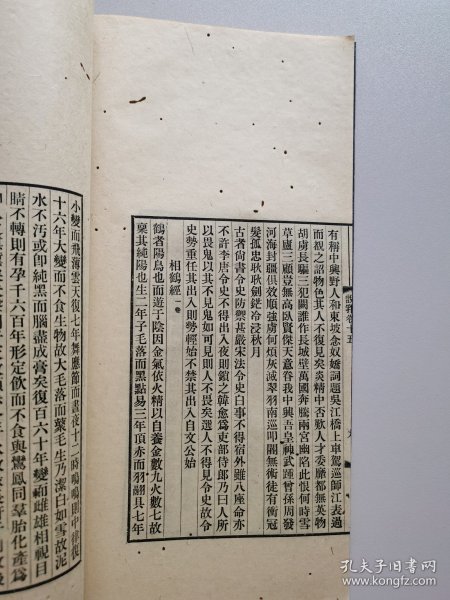 有稱中興野人和東坡念奴嬌詞題吳江橋上車駕巡師江表過
而觀之詔物色其人不復見矣炎精中否歎人才委靡都無英物
胡虜長驅三犯闕誰作長城壁萬國奔騰兩宮幽陷此恨何時雪
草廬三顧豈無高臥賢傑天意眷我中興吾皇神武踵曾孫周發
河海封疆俱效順強虜何煩灰滅翠羽南巡叩閽無術徒有衝冠
髮孤忠耿耿劍鋩冷浸秋月
古者尚書令史防禦甚嚴宋法令史白事不得宿外雖八座命亦
不許李唐令史不得出入夜則鎖之韓愈為吏部侍郎乃曰人所
以畏鬼以其不見鬼如可見則人不畏矣選人不得見令史故令
史勢重任其出入則勢輕始不禁其出入自文公始
相鶴經 一卷
鶴者陽鳥也而遊于陰因金氣依火精以自養金數九火數七故
稟其純陽也生二年子毛落而黑點易三年頂赤而羽翮具七年
小變而飛薄雲天復七年聲應節而晝夜十二時鳴鳴則中律復
十六年大變而不食生物故大毛落而叢毛生乃潔白如雪故泥
水不汚或卽純黑而腦盡成膏矣復百六十年變而雌雄相視目
睛不轉則有孕千六百年形定飲而不食與鸞鳳同羣胎化產為
孔夫子旧书网